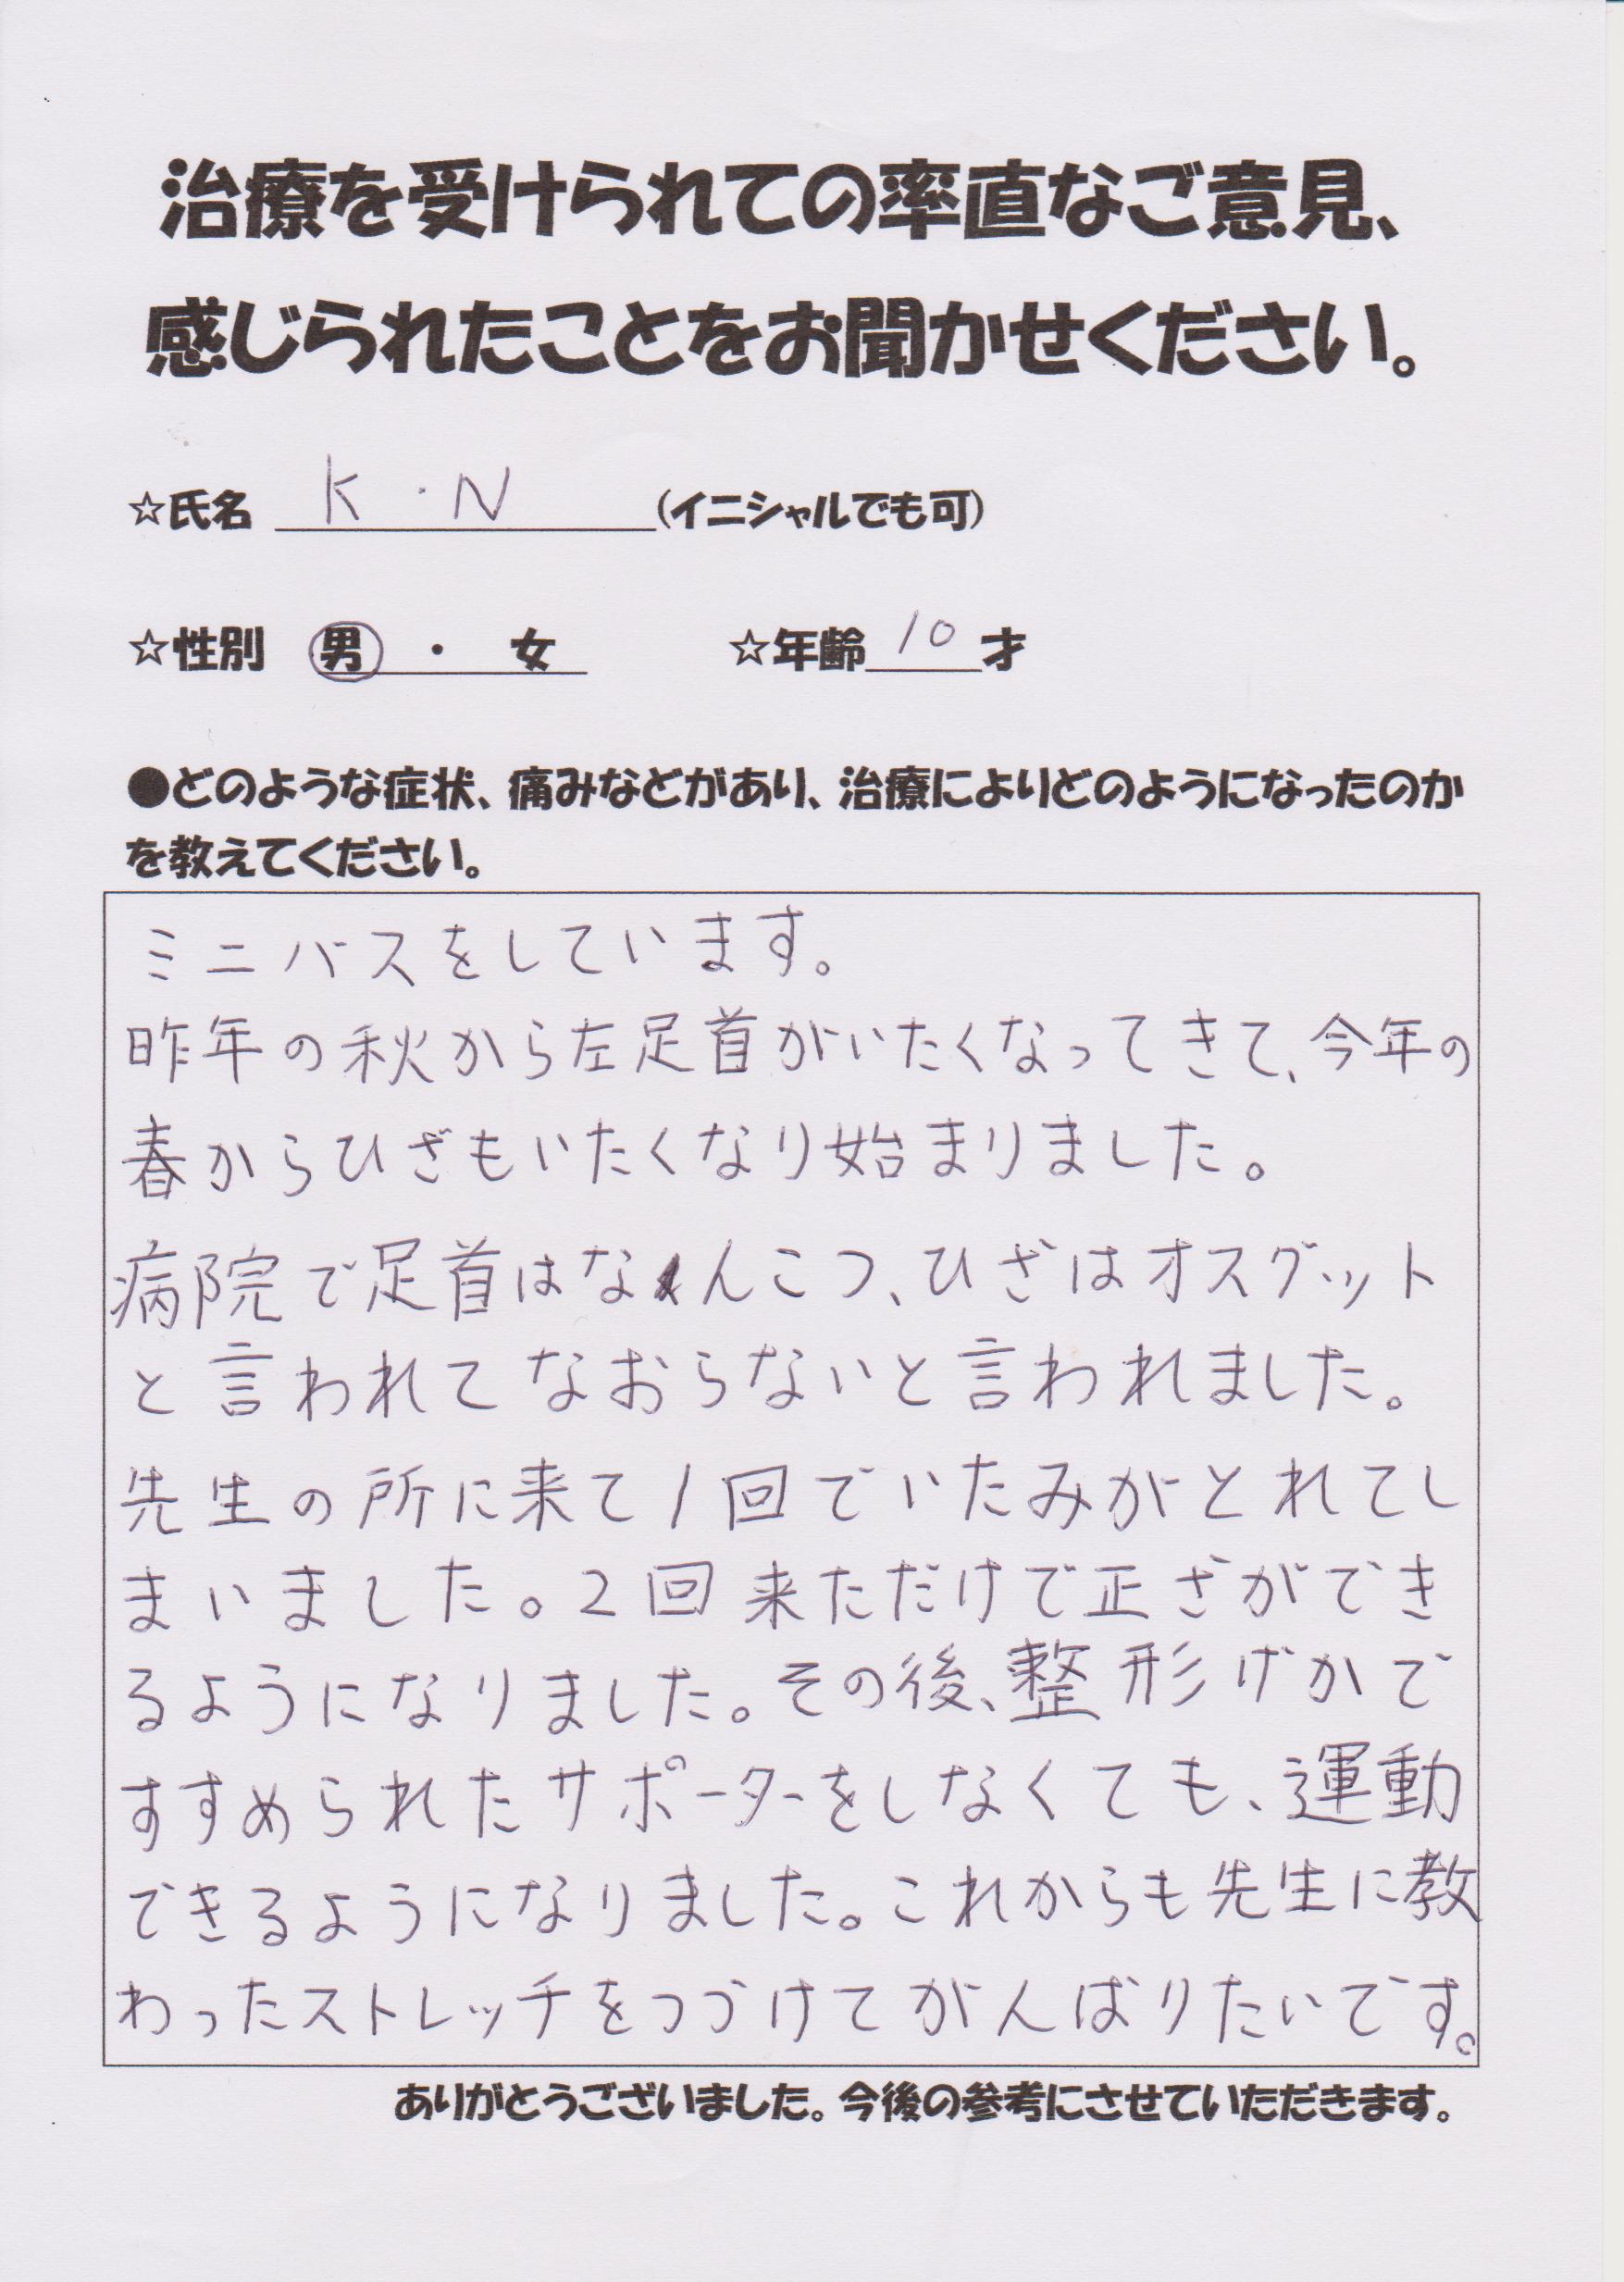 治療を受けられての率直なご意見、
感じられたことをお聞かせください。
☆氏名 K・N (イニシャルでも可)
☆性別 男 ・ 女 ☆年齢 10 才
●どのような症状、痛みなどがあり、治療によりどのようになったのか
を教えてください。
ミニバスをしています。
昨年の秋から左足首がいたくなってきて、今年の
春からひざもいたくなり始まりました。
病院で足首はなんこつ、ひざはオスグット
と言われてなおらないと言われました。
先生の所に来て1回でいたみがとれてし
まいました。2回来ただけで正ざができ
るようになりました。その後、整形げかで
すすめられたサポーターをしなくても、運動
できるようになりました。これからも先生に教
わったストレッチをつづけてがんばりたいです。
ありがとうございました。今後の参考にさせていただきます。